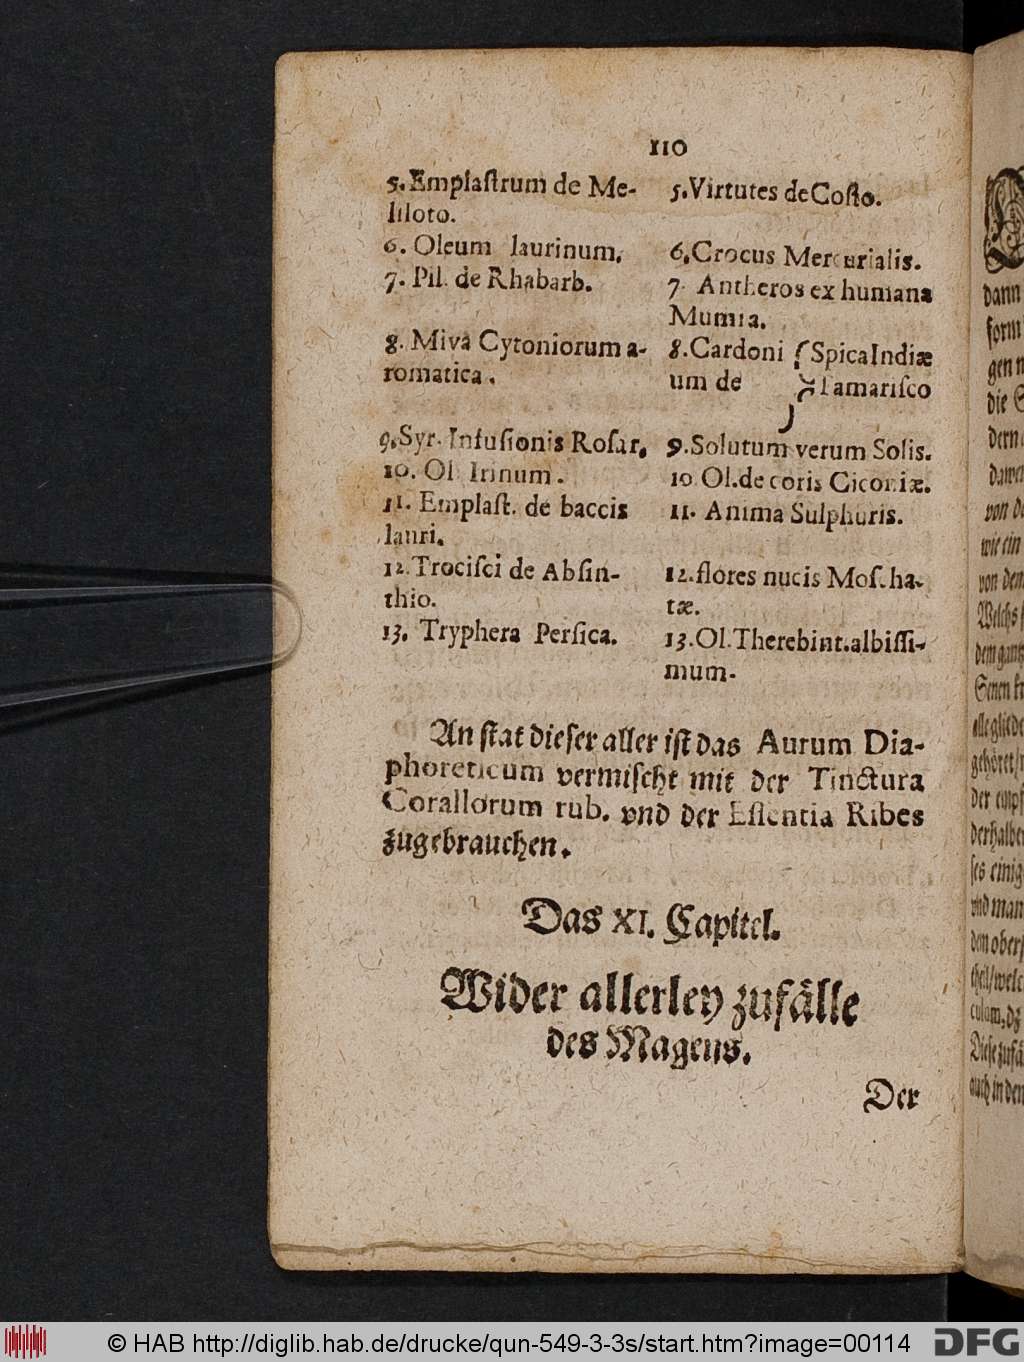 110
5. Emplaſtrum de Me-
liloto.
6. Oleum laurinum.
7. Pil. de Rhabarb.
8. Miva Cytoniorum a-
romatica.
9. Syr. Infuſionis Roſar.
10. Ol. Irinum.
11. Emplaſt. de baccis
lauri.
12. Trociſci de Abſin-
thio.
13. Tryphera Perſica.
5. Virtutes de Coſto.
6. Crocus Mercurialis.
7. Antheros ex humana
Mumia.
8. Cardoni { Spica Indiæ
um de Tamariſco
9. Solutum verum Solis.
10 Ol. de coris Ciconiæ.
11. Anima Sulphuris.
12. flores nucis Moſcha-
tæ.
13. Ol. Therebint. albiſſi-
mum.
An ſtat dieſer aller iſt das Aurum Dia-
phoreticum vermiſcht mit der Tinctura
Corallorum rub. vnd der Eſſentia Ribes
zugebrauchen.
Das XI. Capitel.
Wider allerley zufälle
des Magens.
Der
dann
form
gen
die
dern
von
wie ein
von den
Welchs
dem gantz
Senen
alle gliede
gehöret/
der
derhalbe
ſes einig
vnd man
dem oberſ
theil/welc
culum, dz
Dieſe zufä
auch in den
© HAB http://diglib.hab.de/drucke/qun-549-3-3s/start.htm?image=00114
DFG